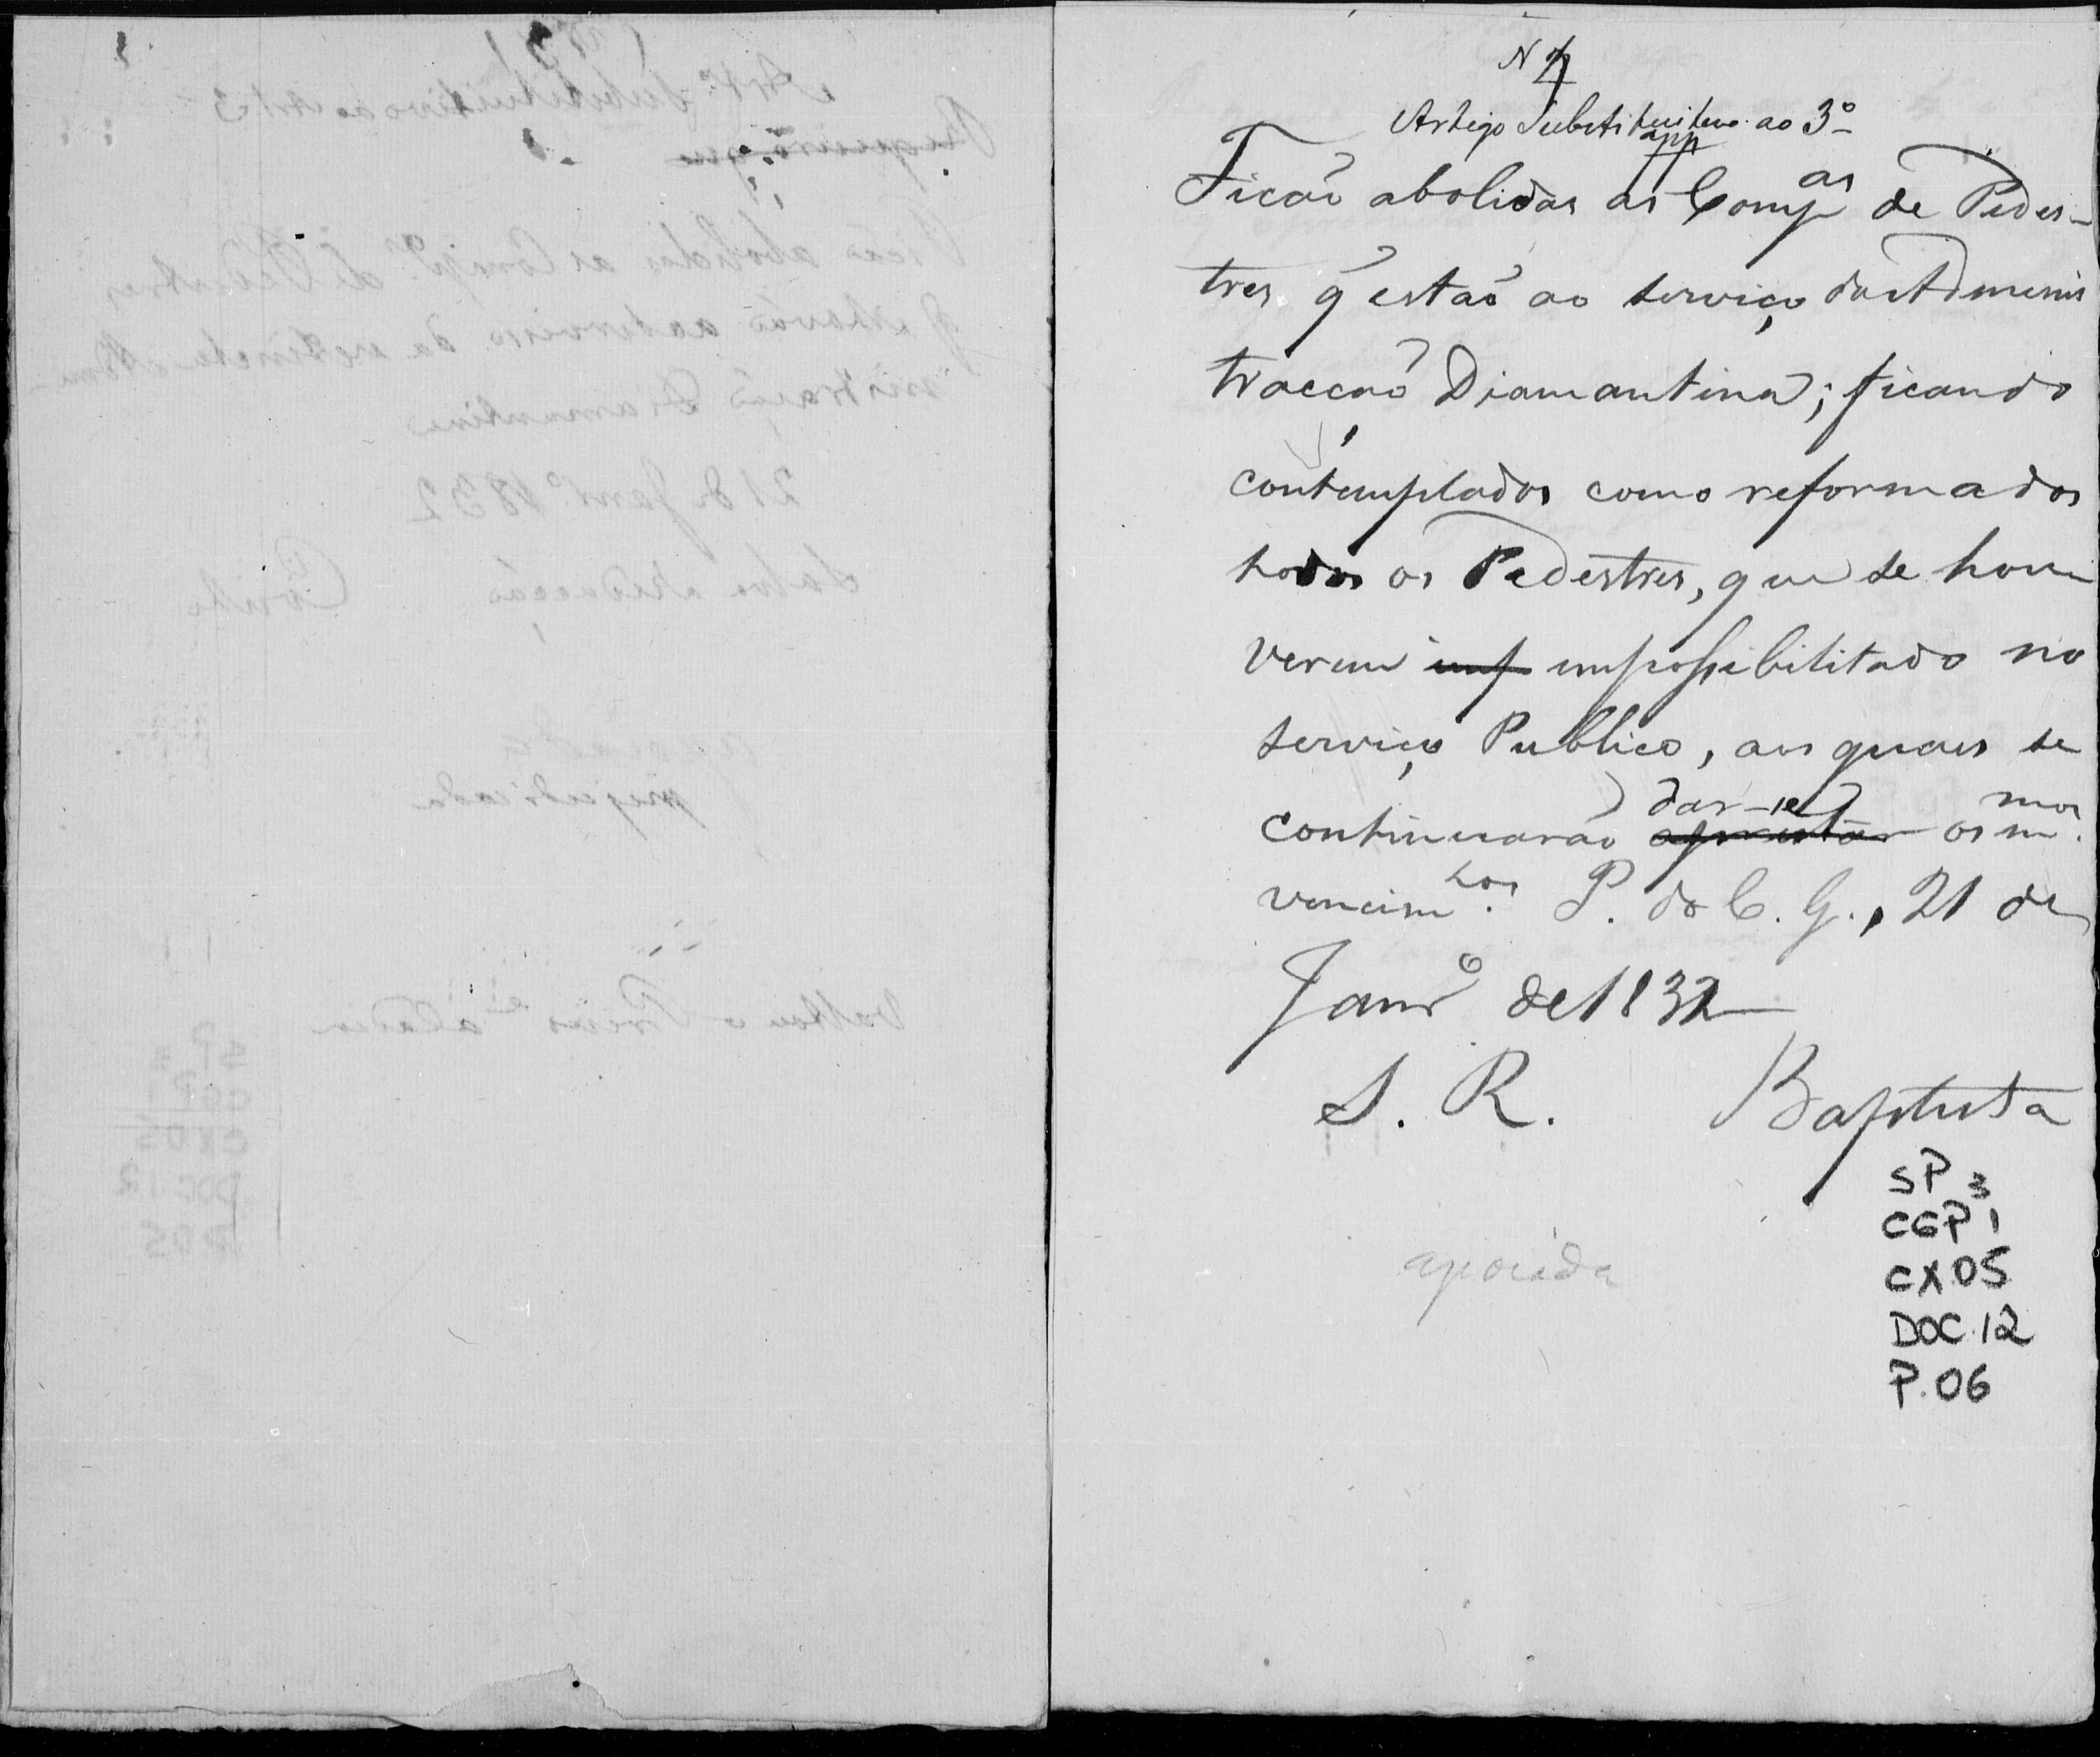 N 4
Artigo Substitutivo ao 3º
app
Ficaõ abolidas as Comp.as de Pedes-
tres q̃ estaõ ao serviço da Adminis
tracçaõ Diamantina; ficando
contemplados como reformados
todos os Pedestres, que se hou
verem imp impossibilitado no
serviço Publico, aos quaes se
continuaraõ dar-se os m.mos
vencim.tos P. do C. G., 21 de
Janr.o de 1832
S. R. Baptista
apoiada
SP 3
CGP 1
CX05
DOC.12
P.06